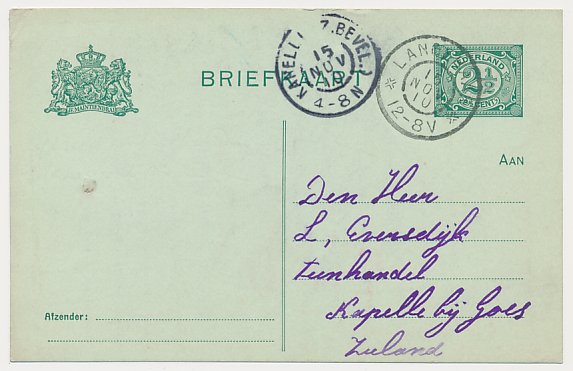 BRIEFKAART
JE MAINTIENDRAI
KAPELLE (Z.BEVEL.)
15
NOV
4-8N
LAN
1
NO
10
12-8V
NEDERLAND
2½
CENT
AAN
Den Heer
L, Eversdijk
Tuinhandel
Kapelle bij Goes
Zeeland
Afzender: